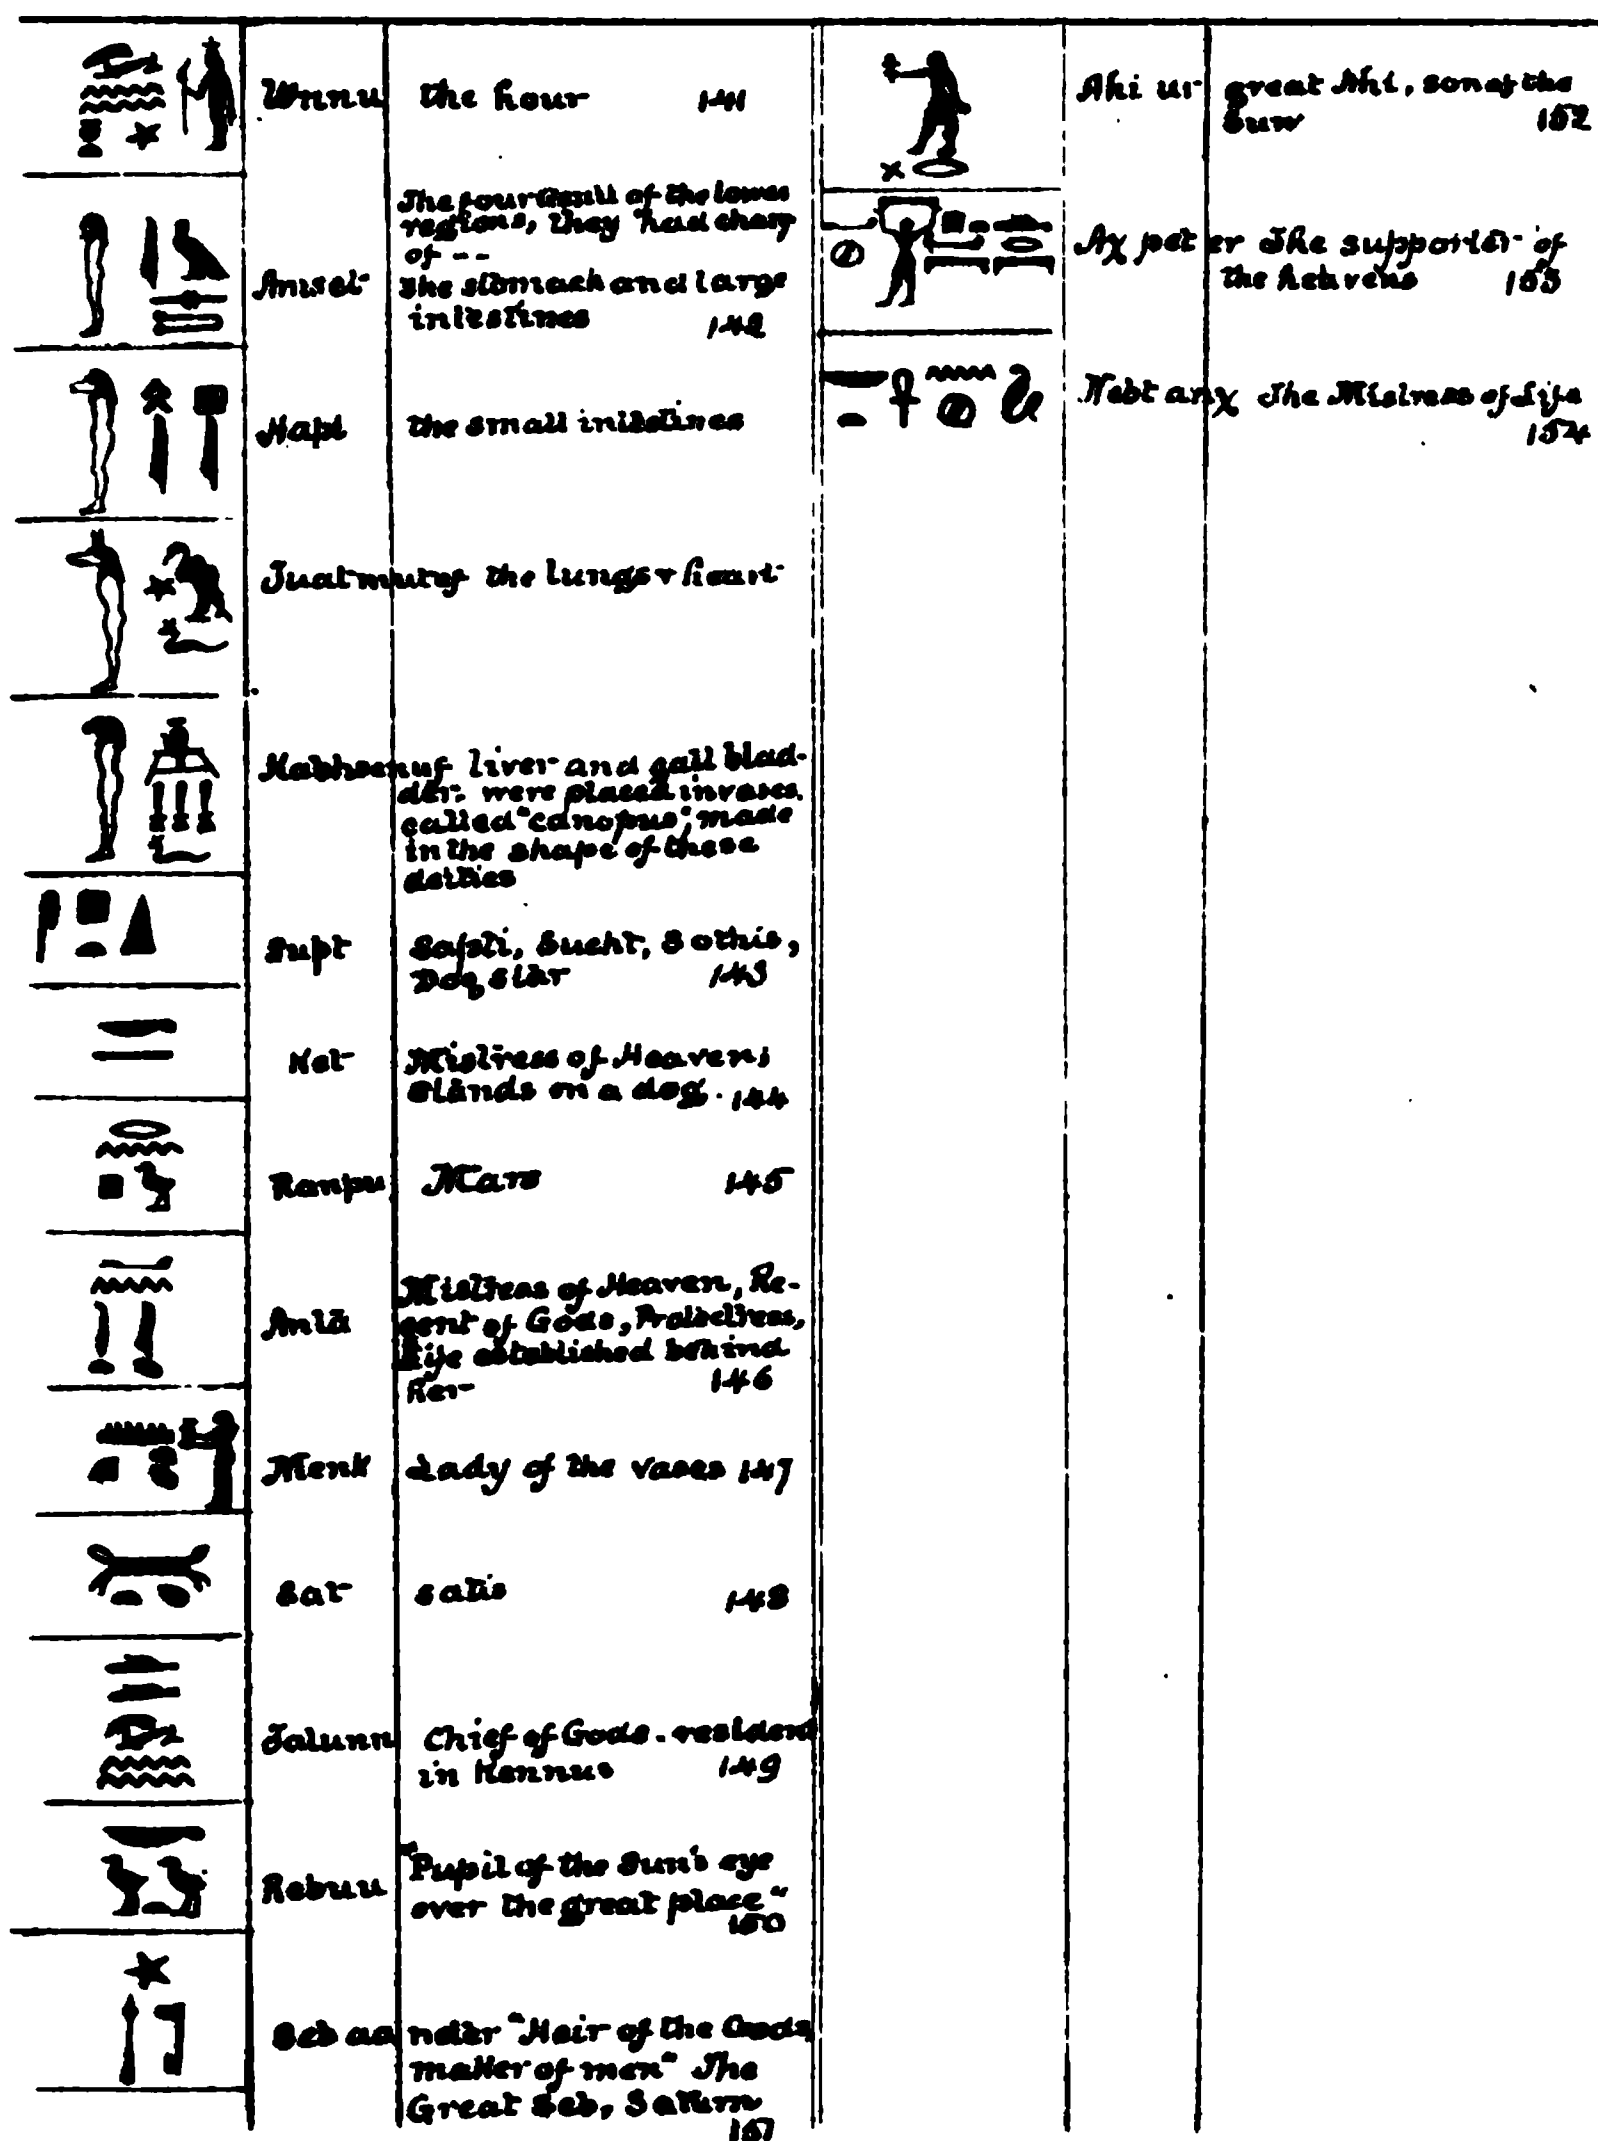 Unnu the hour 141
The four Genii of the lower
regions, they had charge
of --
Amset the stomach and large
intestines 142
Hapi the small intestines
Tuatmutef the lungs & heart
Kabhsenuf liver and gall blad-
der. were placed in vases
called "canopus", made
in the shape of these
deities
Supt Sapti, Sucht, Sothis,
Dog star 143
Net Mistress of Heaven;
stands on a dog. 144
Ranpu Mars 145
Mistress of Heaven, Re-
Antā gent of Gods, Protectress,
Life established behind
her 146
Menk Lady of the vases 147
Sat satis 148
Tatunn Chief of Gods. resident
in Hennus 149
Rebuu "Pupil of the Sun's eye
over the great place" 150
Seb aa neter "Heir of the Gods,
matter of men" The
Great Seb, Saturn
151
Ahi ur great Ahi, son of the
Sun 152
Aχ pet er The supporter of
the heavens 153
Nebt anχ The Mistress of Life
154